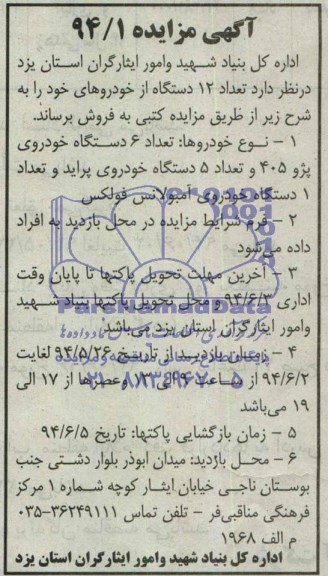 آگهی مزایده ۹۴/۱
اداره کل بنیاد شهید وامور ایثارگران استان یزد
درنظر دارد تعداد ۱۲ دستگاه از خودروهای خود را به
شرح زیر از طریق مزایده کتبی به فروش برساند.
۱ - نوع خودروها: تعداد ۶ دستگاه خودروی
پژو ۴۰۵ و تعداد ۵ دستگاه خودروی پراید و تعداد
۱ دستگاه خودروی آمبولانس فولکس
۲ - فرم شرایط مزایده در محل بازدید به افراد
داده می‌شود
۳ - آخرین مهلت تحویل پاکتها تا پایان وقت
اداری ۹۴/۶/۳ و محل تحویل پاکتها بنیاد شهید
وامور ایثارگران استان یزد می‌باشد
ParsNamadData
۴ - زمان بازدید از تاریخ ۹۴/۵/۲۶ لغایت
۹۴/۶/۲ از ساعت ۹ الی ۱۳ وعصرها از ۱۷ الی
۱۹ می‌باشد
۵ - زمان بازگشایی پاکتها: تاریخ ۹۴/۶/۵
۶ - محل بازدید: میدان ابوذر بلوار دشتی جنب
بوستان ناجی خیابان ایثار کوچه شماره ۱ مرکز
فرهنگی مناقبی‌فر - تلفن تماس ۳۶۲۴۹۱۱۱-۰۳۵
م الف ۱۹۶۸
اداره کل بنیاد شهید وامور ایثارگران استان یزد